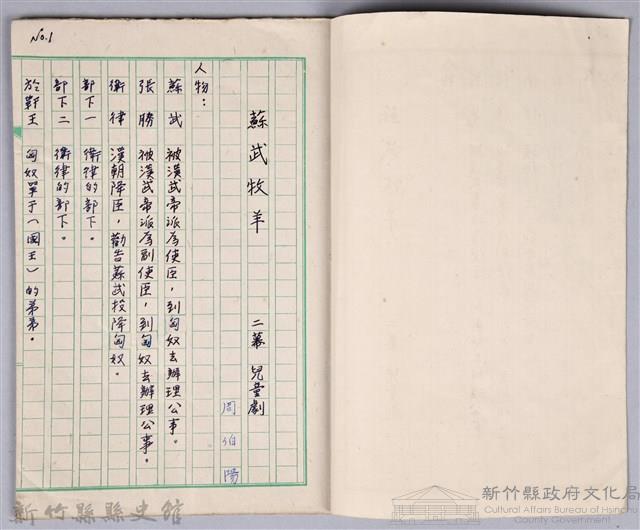 No.1
蘇武牧羊　二幕 兒童劇
周伯陽
人物：
蘇武 被漢武帝派為使臣，到匈奴去辦理公事。
張勝 被漢武帝派為副使臣，到匈奴去辦理公事。
衛律 漢朝降臣，勸告蘇武投降匈奴。
部下一 衛律的部下。
部下二 衛律的部下。
於靬王 匈奴單于（國王）的弟弟。
新竹縣縣史館
新竹縣政府文化局
Cultural Affairs Bureau of Hsinchu
County Government